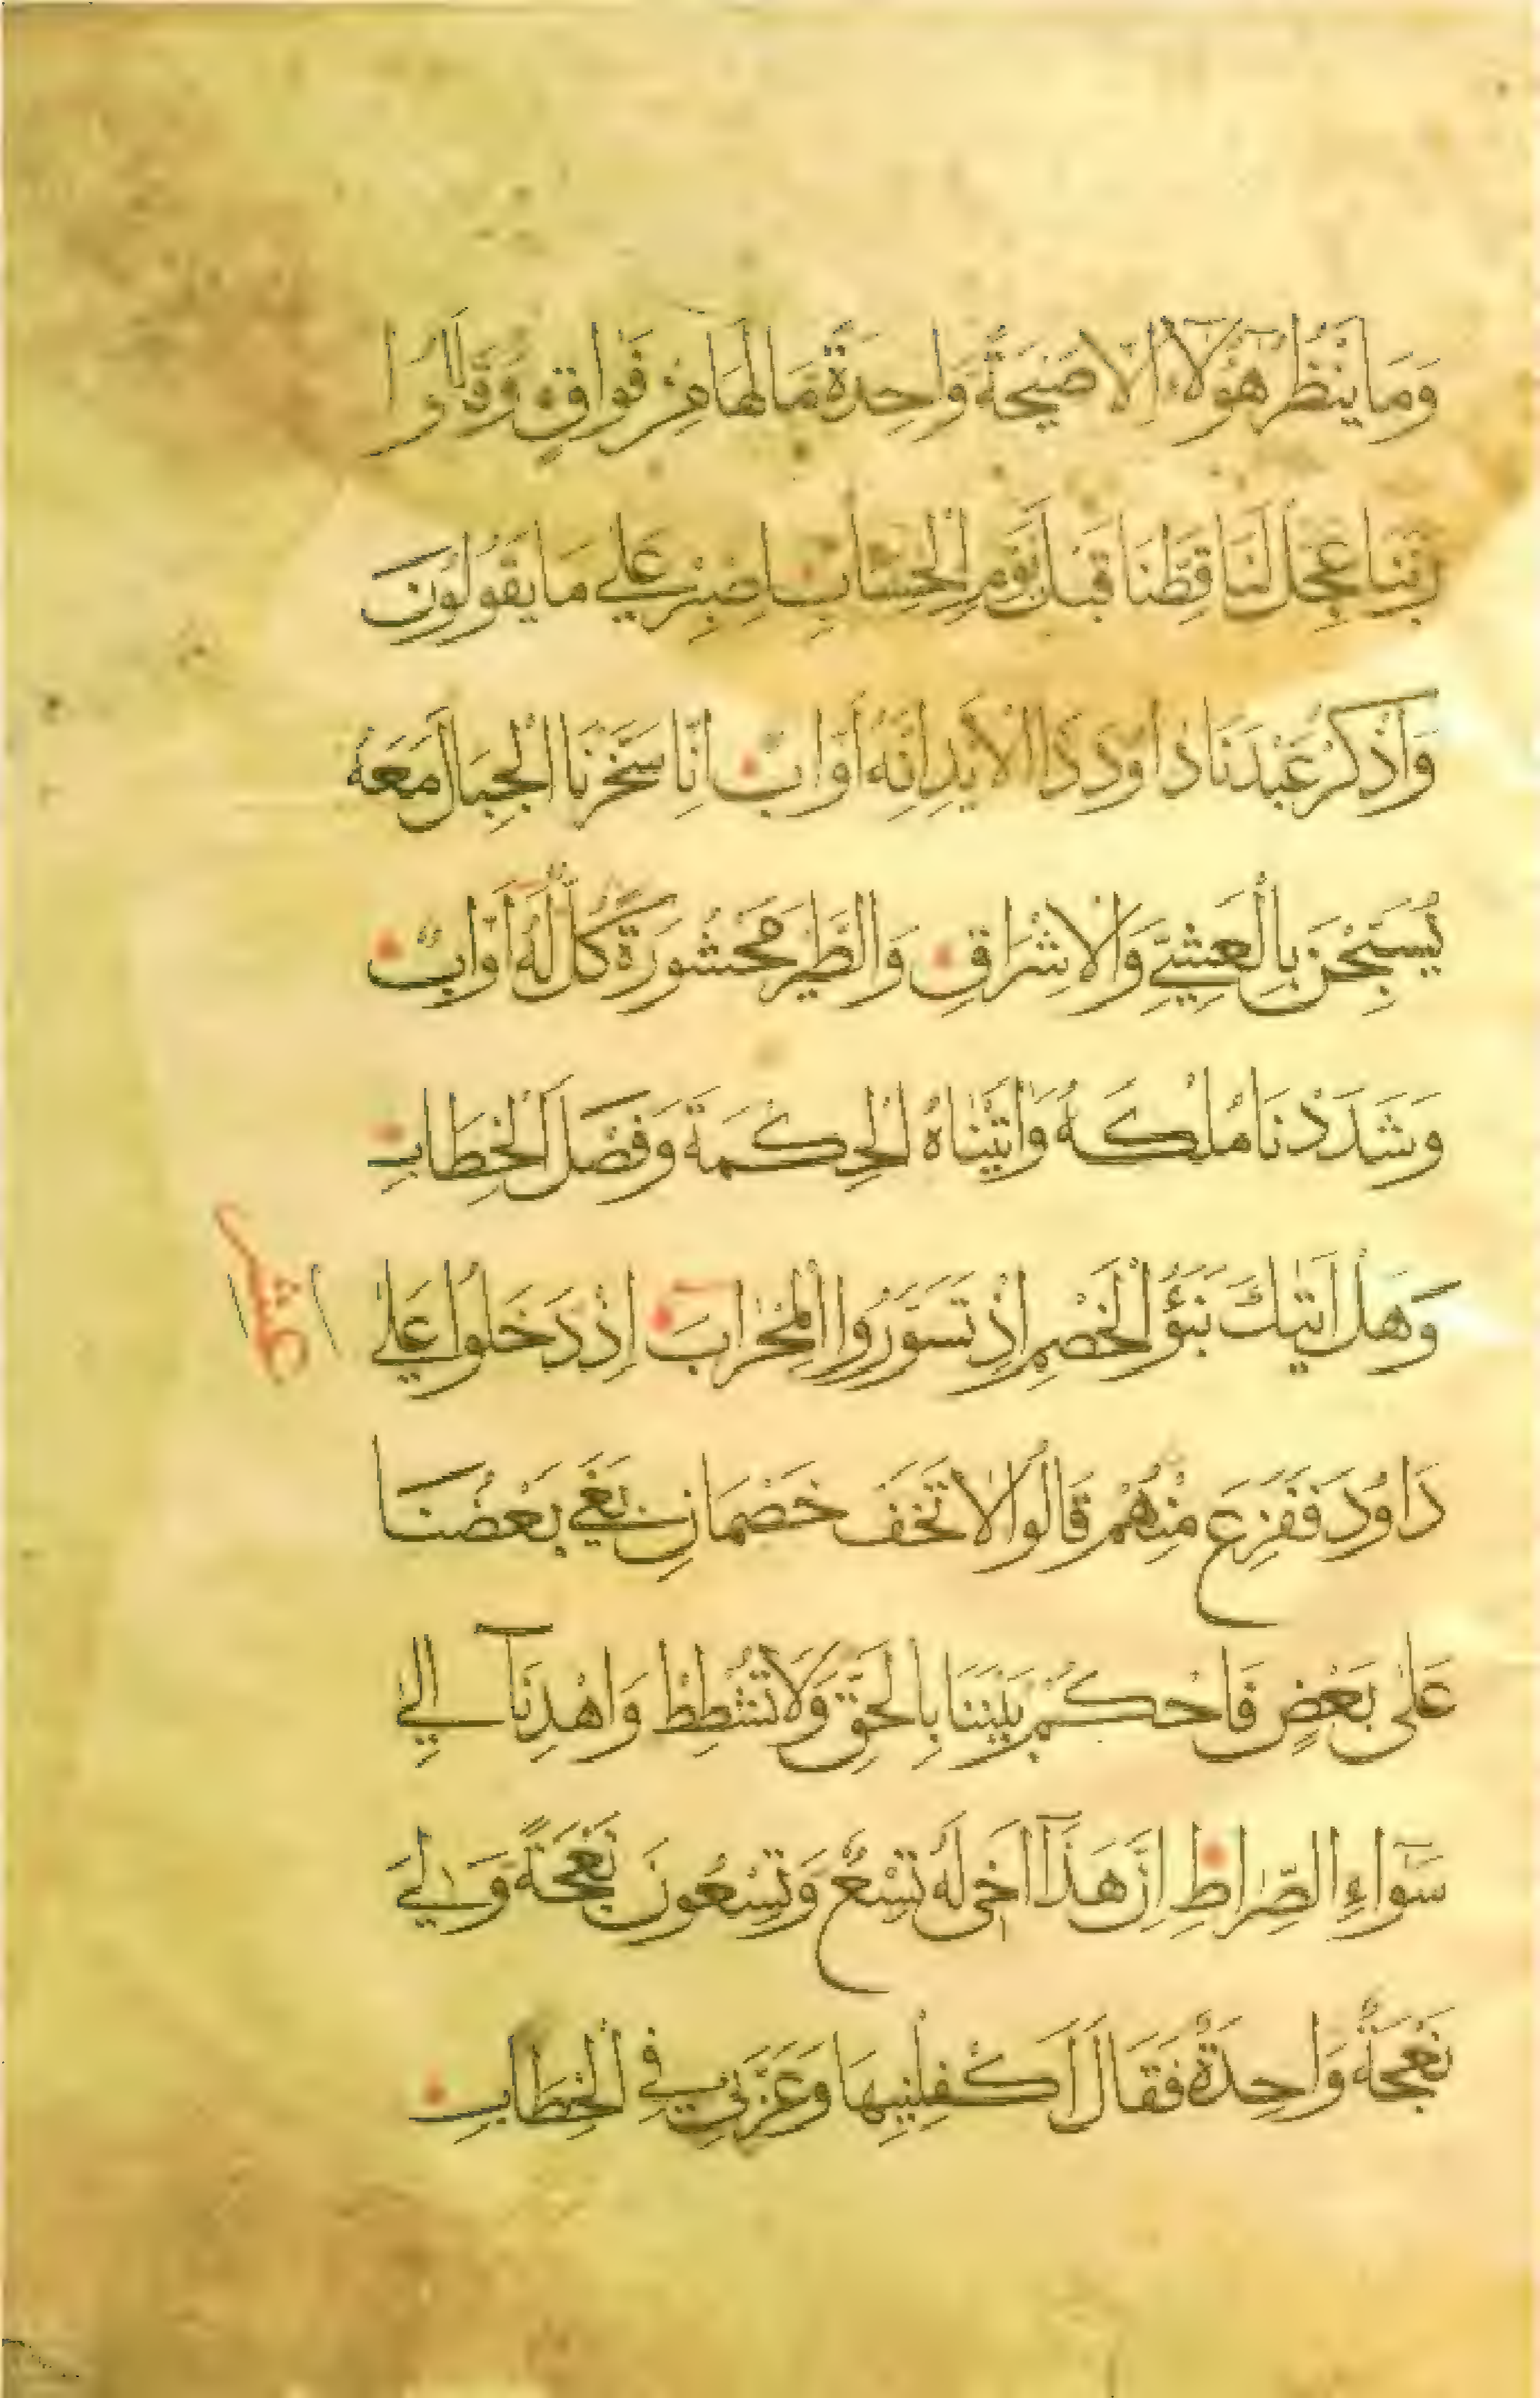 وَمَا يَنْظُرُ هٰؤُلَاءِ اِلَّا صَيْحَةً وَاحِدَةً مَا لَهَا مِنْ فَوَاقٍ وَقَالُوا
رَبَّنَا عَجِّلْ لَنَا قِطَّنَا قَبْلَ يَوْمِ الْحِسَابِ اِصْبِرْ عَلَى مَا يَقُولُونَ
وَاذْكُرْ عَبْدَنَا دَاوُدَ ذَا الْاَيْدِ اِنَّهُ اَوَّابٌ اِنَّا سَخَّرْنَا الْجِبَالَ مَعَهُ
يُسَبِّحْنَ بِالْعَشِيِّ وَالْاِشْرَاقِ وَالطَّيْرَ مَحْشُورَةً كُلٌّ لَهُ اَوَّابٌ
وَشَدَدْنَا مُلْكَهُ وَاٰتَيْنَاهُ الْحِكْمَةَ وَفَصْلَ الْخِطَابِ
وَهَلْ اَتٰيكَ نَبَؤُا الْخَصْمِ اِذْ تَسَوَّرُوا الْمِحْرَابَ اِذْ دَخَلُوا عَلٰى
دَاوُدَ فَفَزِعَ مِنْهُمْ قَالُوا لَا تَخَفْ خَصْمَانِ بَغٰى بَعْضُنَا
عَلٰى بَعْضٍ فَاحْكُمْ بَيْنَنَا بِالْحَقِّ وَلَا تُشْطِطْ وَاهْدِنَآ اِلٰى
سَوَآءِ الصِّرَاطِ اِنَّ هٰذَآ اَخِى لَهُ تِسْعٌ وَتِسْعُونَ نَعْجَةً وَلِيَ
نَعْجَةٌ وَاحِدَةٌ فَقَالَ اَكْفِلْنِيهَا وَعَزَّنِي فِي الْخِطَابِ